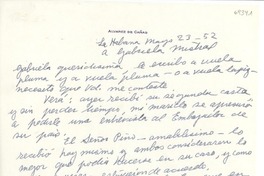 ALVAREZ DE CAÑAS
La Habana Mayo 23-52
a Gabriela Mistral
Gabriela queridísima le escribo a vuela
pluma y a vuela pluma - o a vuela lapiz -
necesito que Vd me conteste
Verá; ayer recibí su segunda carta
y sin perder tiempo, mi marido se apresuró
a pedirle una entrevista al Embajador de
su país.
El Señor Pino - amabilísimo - lo
recibió hoy mismo y ambos consideraron lo
mejor que podía hacerse en su caso, y como